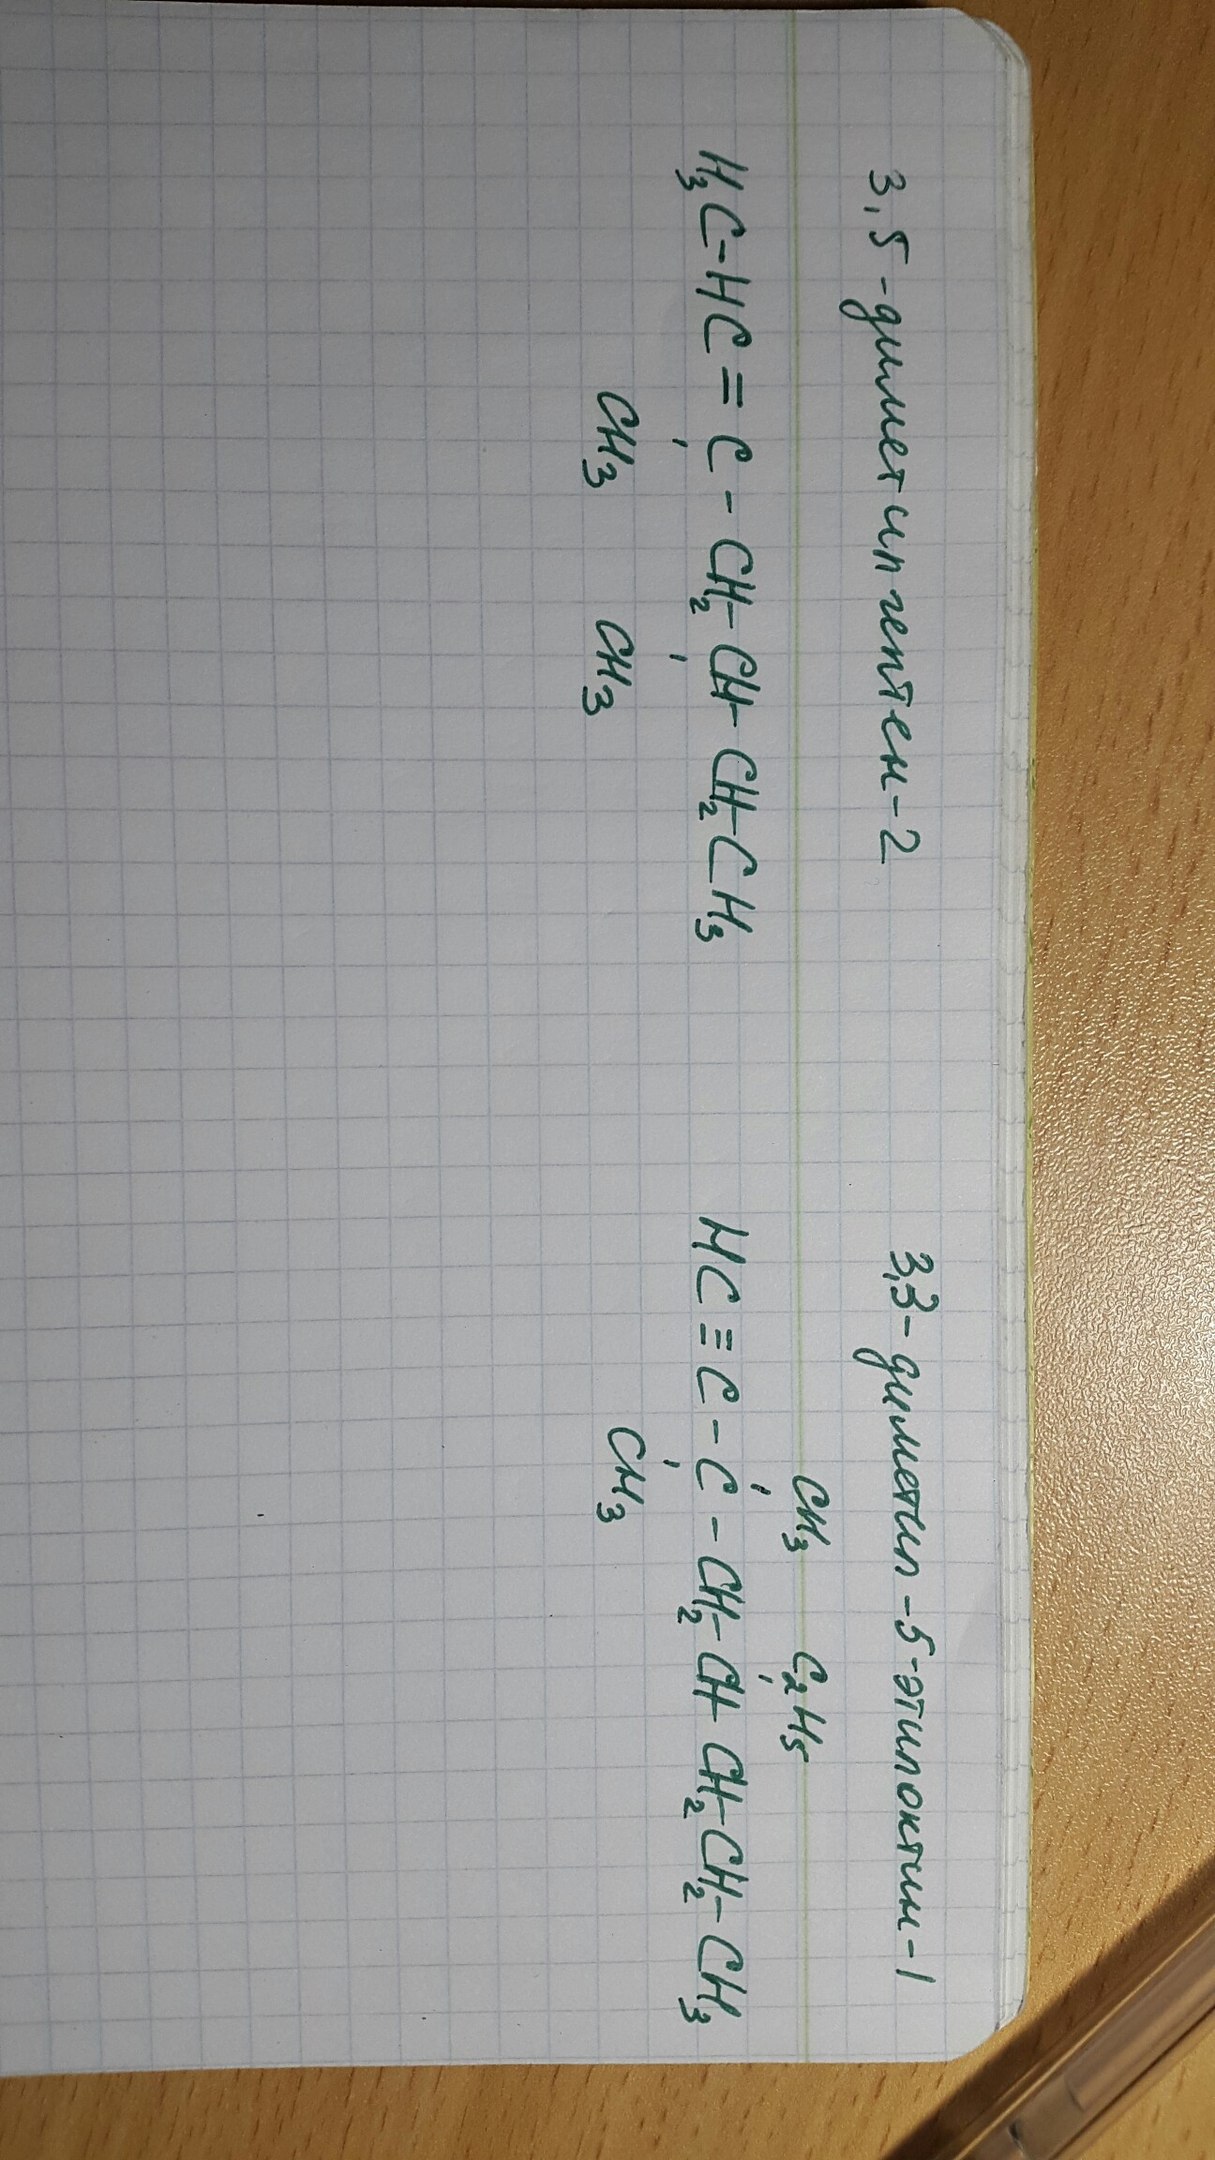 3,5-диметилгептен-2
H₃C-HC=C-CH₂-CH-CH₂-CH₃
CH₃ CH₃
3,3-диметил-5-этилоктин-1
CH₃ C₂H₅
HC≡C-C-CH₂-CH-CH₂-CH₂-CH₃
CH₃